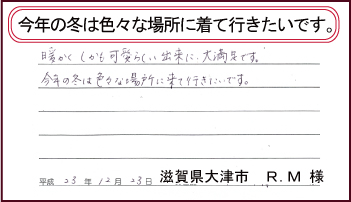 今年の冬は色々な場所に着て行きたいです。
暖かく しかも可愛らしい出来に、大満足です。
今年の冬は色々な場所に来て行きたいです。
平成 23 年 12 月 23 日 滋賀県大津市 R.M 様